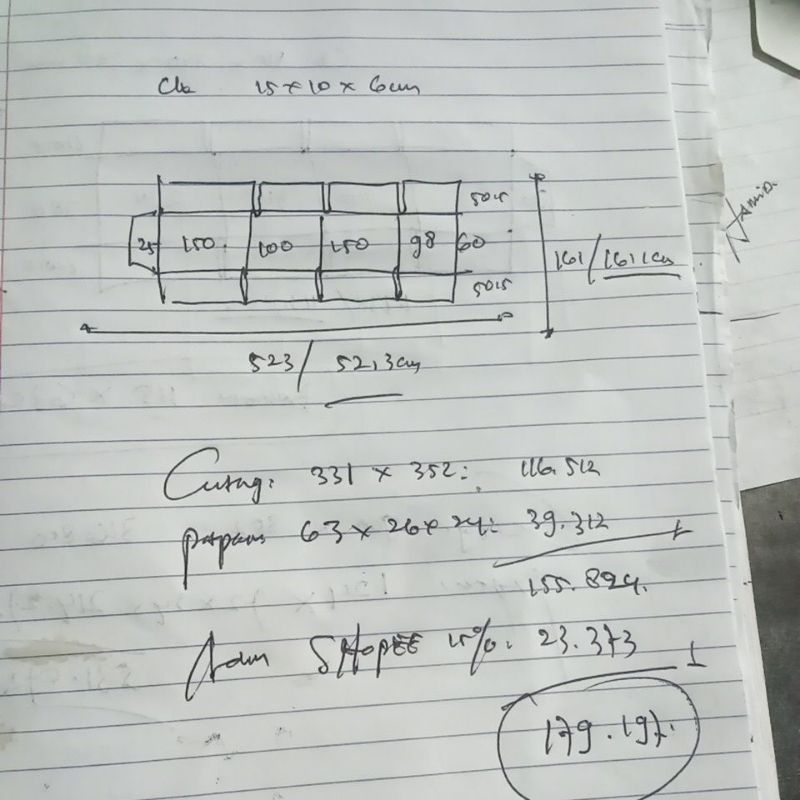 15 x 10 x 6cm
50,5
25 150 100 150 98 60
161 / 16,1 cm
50,5
523 / 52,3 cm
331 x 352 : 116.512
63 x 26 x 24 : 39.312 +
155.824.
Adm SHOPEE 15% : 23.373 +
179.197.